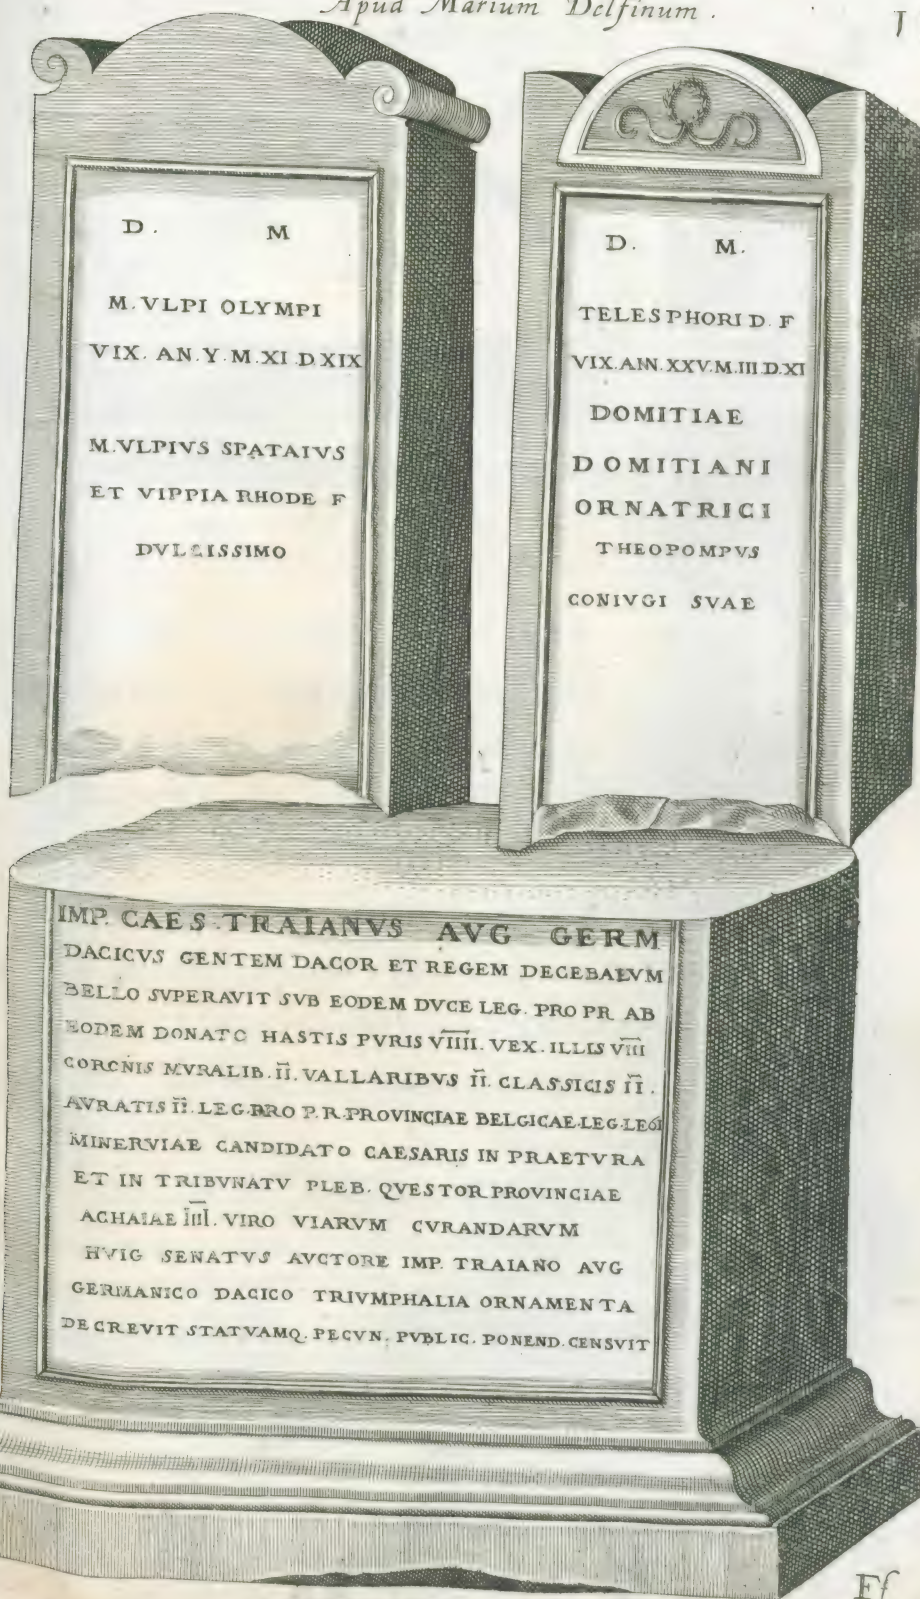 Apud Marium Delfinum.
D. M
M. VLPI OLYMPI
VIX. AN. Y. M. XI D. XIX
M. VLPIVS SPATAIVS
ET VIPPIA RHODE F
DVLCISSIMO
D. M.
TELESPHORI D. F
VIX. ANN. XXV. M. III D. XI
DOMITIAE
DOMITIANI
ORNATRICI
THEOPOMPVS
CONIVGI SVAE
IMP. CAES. TRAIANVS AVG GERM
DACICVS GENTEM DACOR ET REGEM DECEBALVM
BELLO SVPERAVIT SVB EODEM DVCE LEG. PRO PR AB
EODEM DONATO HASTIS PVRIS V̅I̅I̅I̅I̅. VEX. ILLIS V̅I̅I̅I̅
CORONIS MVRALIB. I̅I̅. VALLARIBVS I̅I̅. CLASSICIS I̅I̅.
AVRATIS I̅I̅. LEG. PRO P. R. PROVINCIAE BELGICAE. LEG. LEGI
MINERVIAE CANDIDATO CAESARIS IN PRAETVRA
ET IN TRIBVNATV PLEB. QVESTOR PROVINCIAE
ACHAIAE I̅I̅I̅I̅. VIRO VIARVM CVRANDARVM
HVIG SENATVS AVCTORE IMP. TRAIANO AVG
GERMANICO DACICO TRIVMPHALIA ORNAMENTA
DECREVIT STATVAMQ. PECVN. PVBLIC. PONEND. CENSVIT
Ff